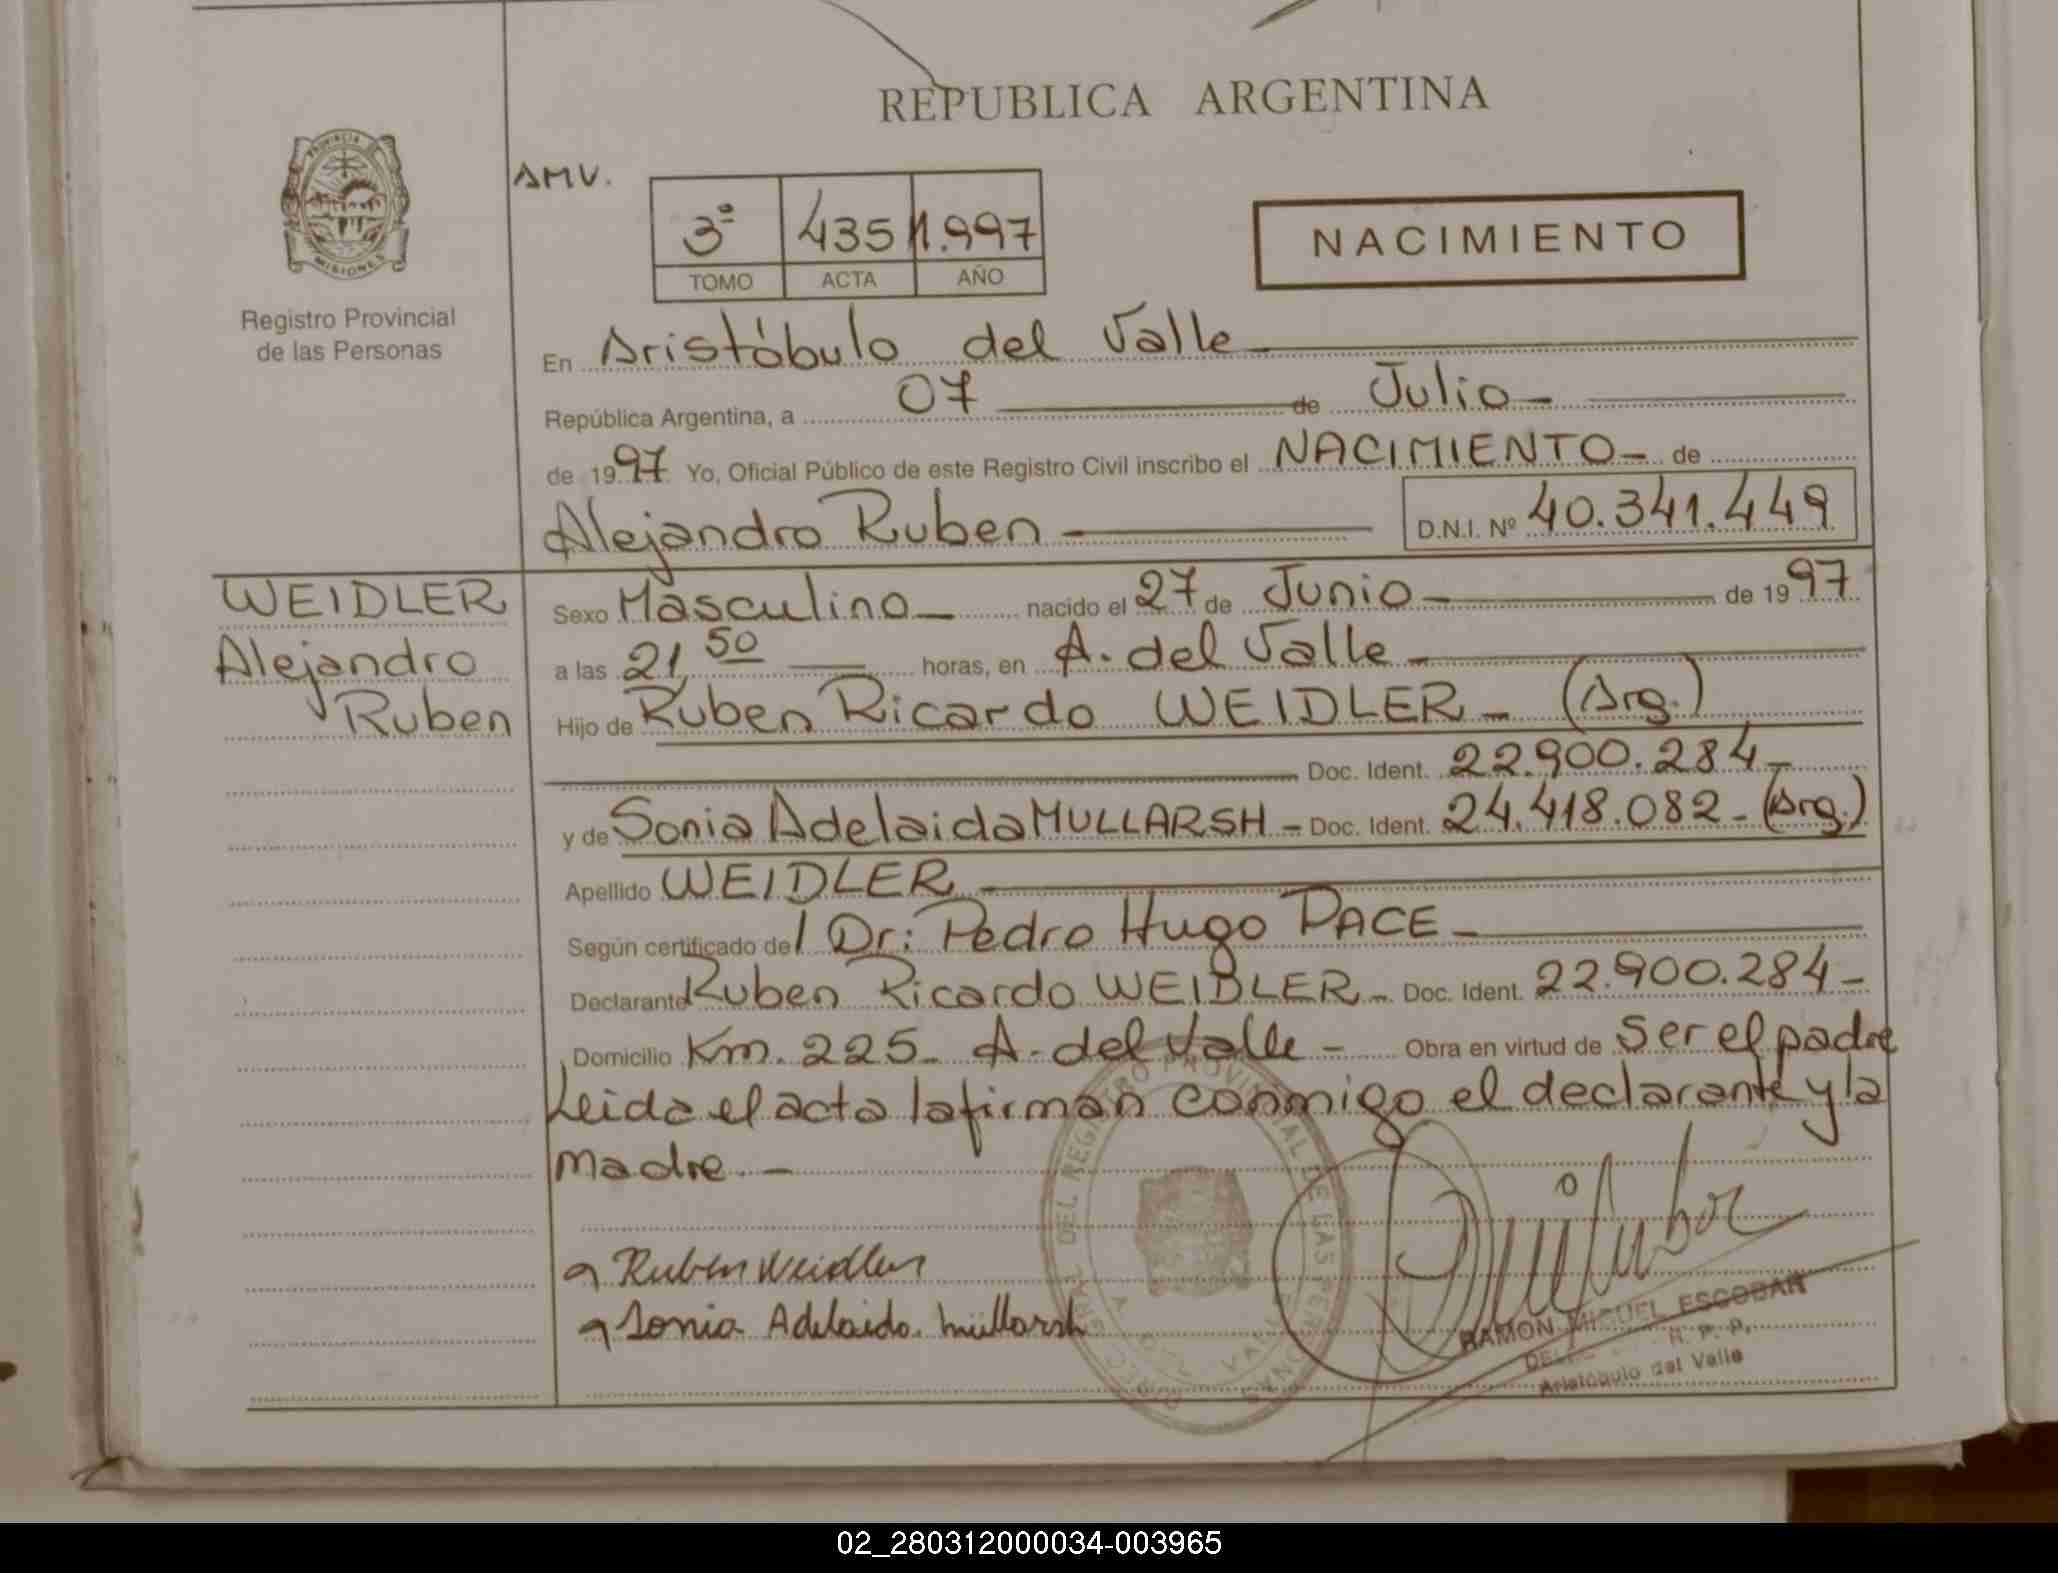 REPUBLICA ARGENTINA
PROVINCIA DE
MISIONES
Registro Provincial
de las Personas
AMV.
3º 435 1.997
TOMO ACTA AÑO
NACIMIENTO
En Aristóbulo del Valle
República Argentina, a 07 de Julio
de 1997 Yo, Oficial Público de este Registro Civil inscribo el NACIMIENTO de
Alejandro Ruben D.N.I. Nº 40.341.449
WEIDLER
Alejandro
Ruben
Sexo Masculino nacido el 27 de Junio de 1997
a las 21,50 horas, en A. del Valle
Hijo de Ruben Ricardo WEIDLER (Arg.)
Doc. Ident. 22.900.284
y de Sonia Adelaida MULLARSH Doc. Ident. 24.418.082 (Arg.)
Apellido WEIDLER
Según certificado del Dr: Pedro Hugo PACE
Declarante Ruben Ricardo WEIDLER Doc. Ident. 22.900.284
Domicilio Km. 225 A. del Valle Obra en virtud de Ser el padre
Leida el acta la firman conmigo el declarante y la
Madre.
Ruben Weidler
Sonia Adelaida Müllarsh
DEL REGISTRO PROVINCIAL DE LAS PERSONAS
RAMON MIGUEL ESCOBAR
R. P. P.
Aristóbulo del Valle
02_280312000034-003965